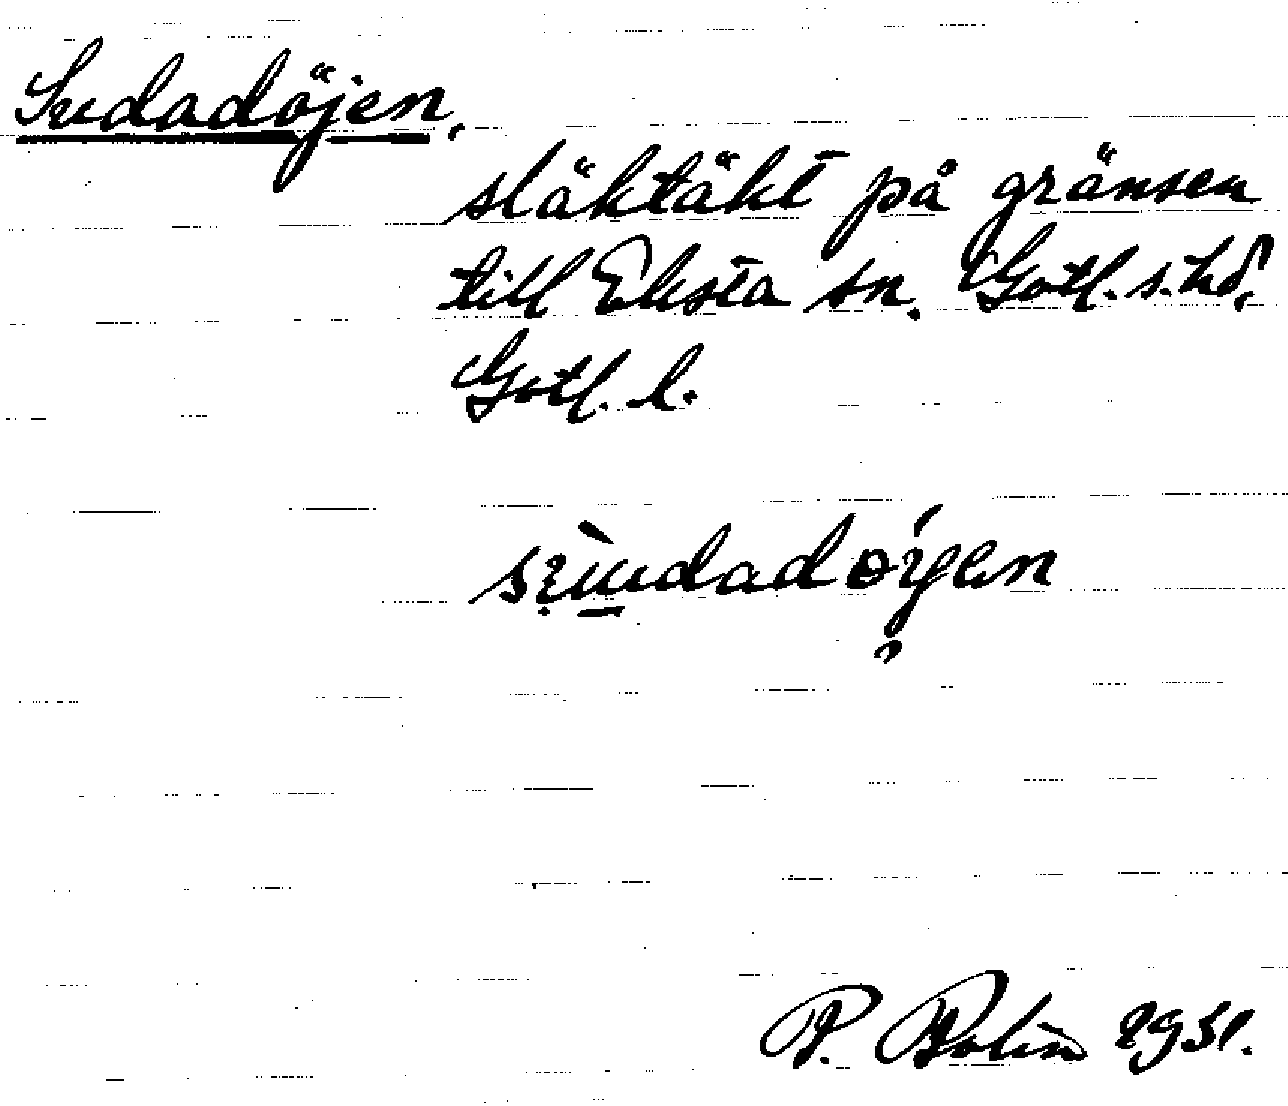 Sudadöjen,
släktäkt på gränsen
till Eksta sn. Gotl. s. hd,
Gotl. l.
P. Bolin 1931.